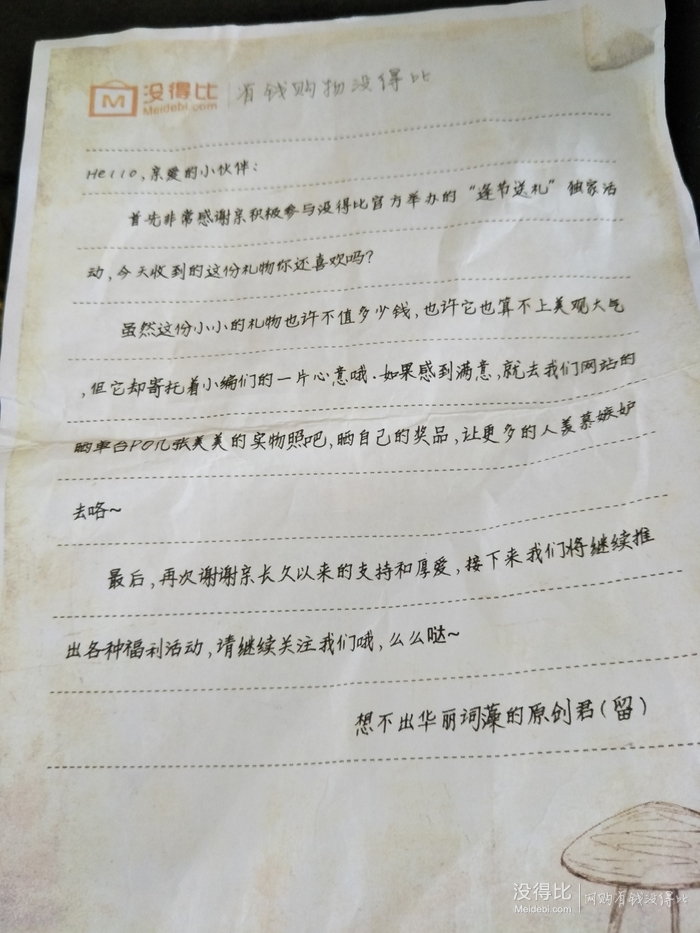 没得比 有钱购物没得比
Meidebi.com
Hello，亲爱的小伙伴：
首先非常感谢亲积极参与没得比官方举办的“逢节送礼”独家活
动，今天收到的这份礼物你还喜欢吗？
虽然这份小小的礼物也许不值多少钱，也许它也算不上美观大气
，但它却寄托着小编们的一片心意哦．如果感到满意，就去我们网站的
晒单台PO几张美美的实物照吧，晒自己的奖品，让更多的人羡慕嫉妒
去咯~
最后，再次谢谢亲长久以来的支持和厚爱，接下来我们将继续推
出各种福利活动，请继续关注我们哦，么么哒~
想不出华丽词藻的原创君（留）
没得比 网购有钱没得比
Meidebi.com